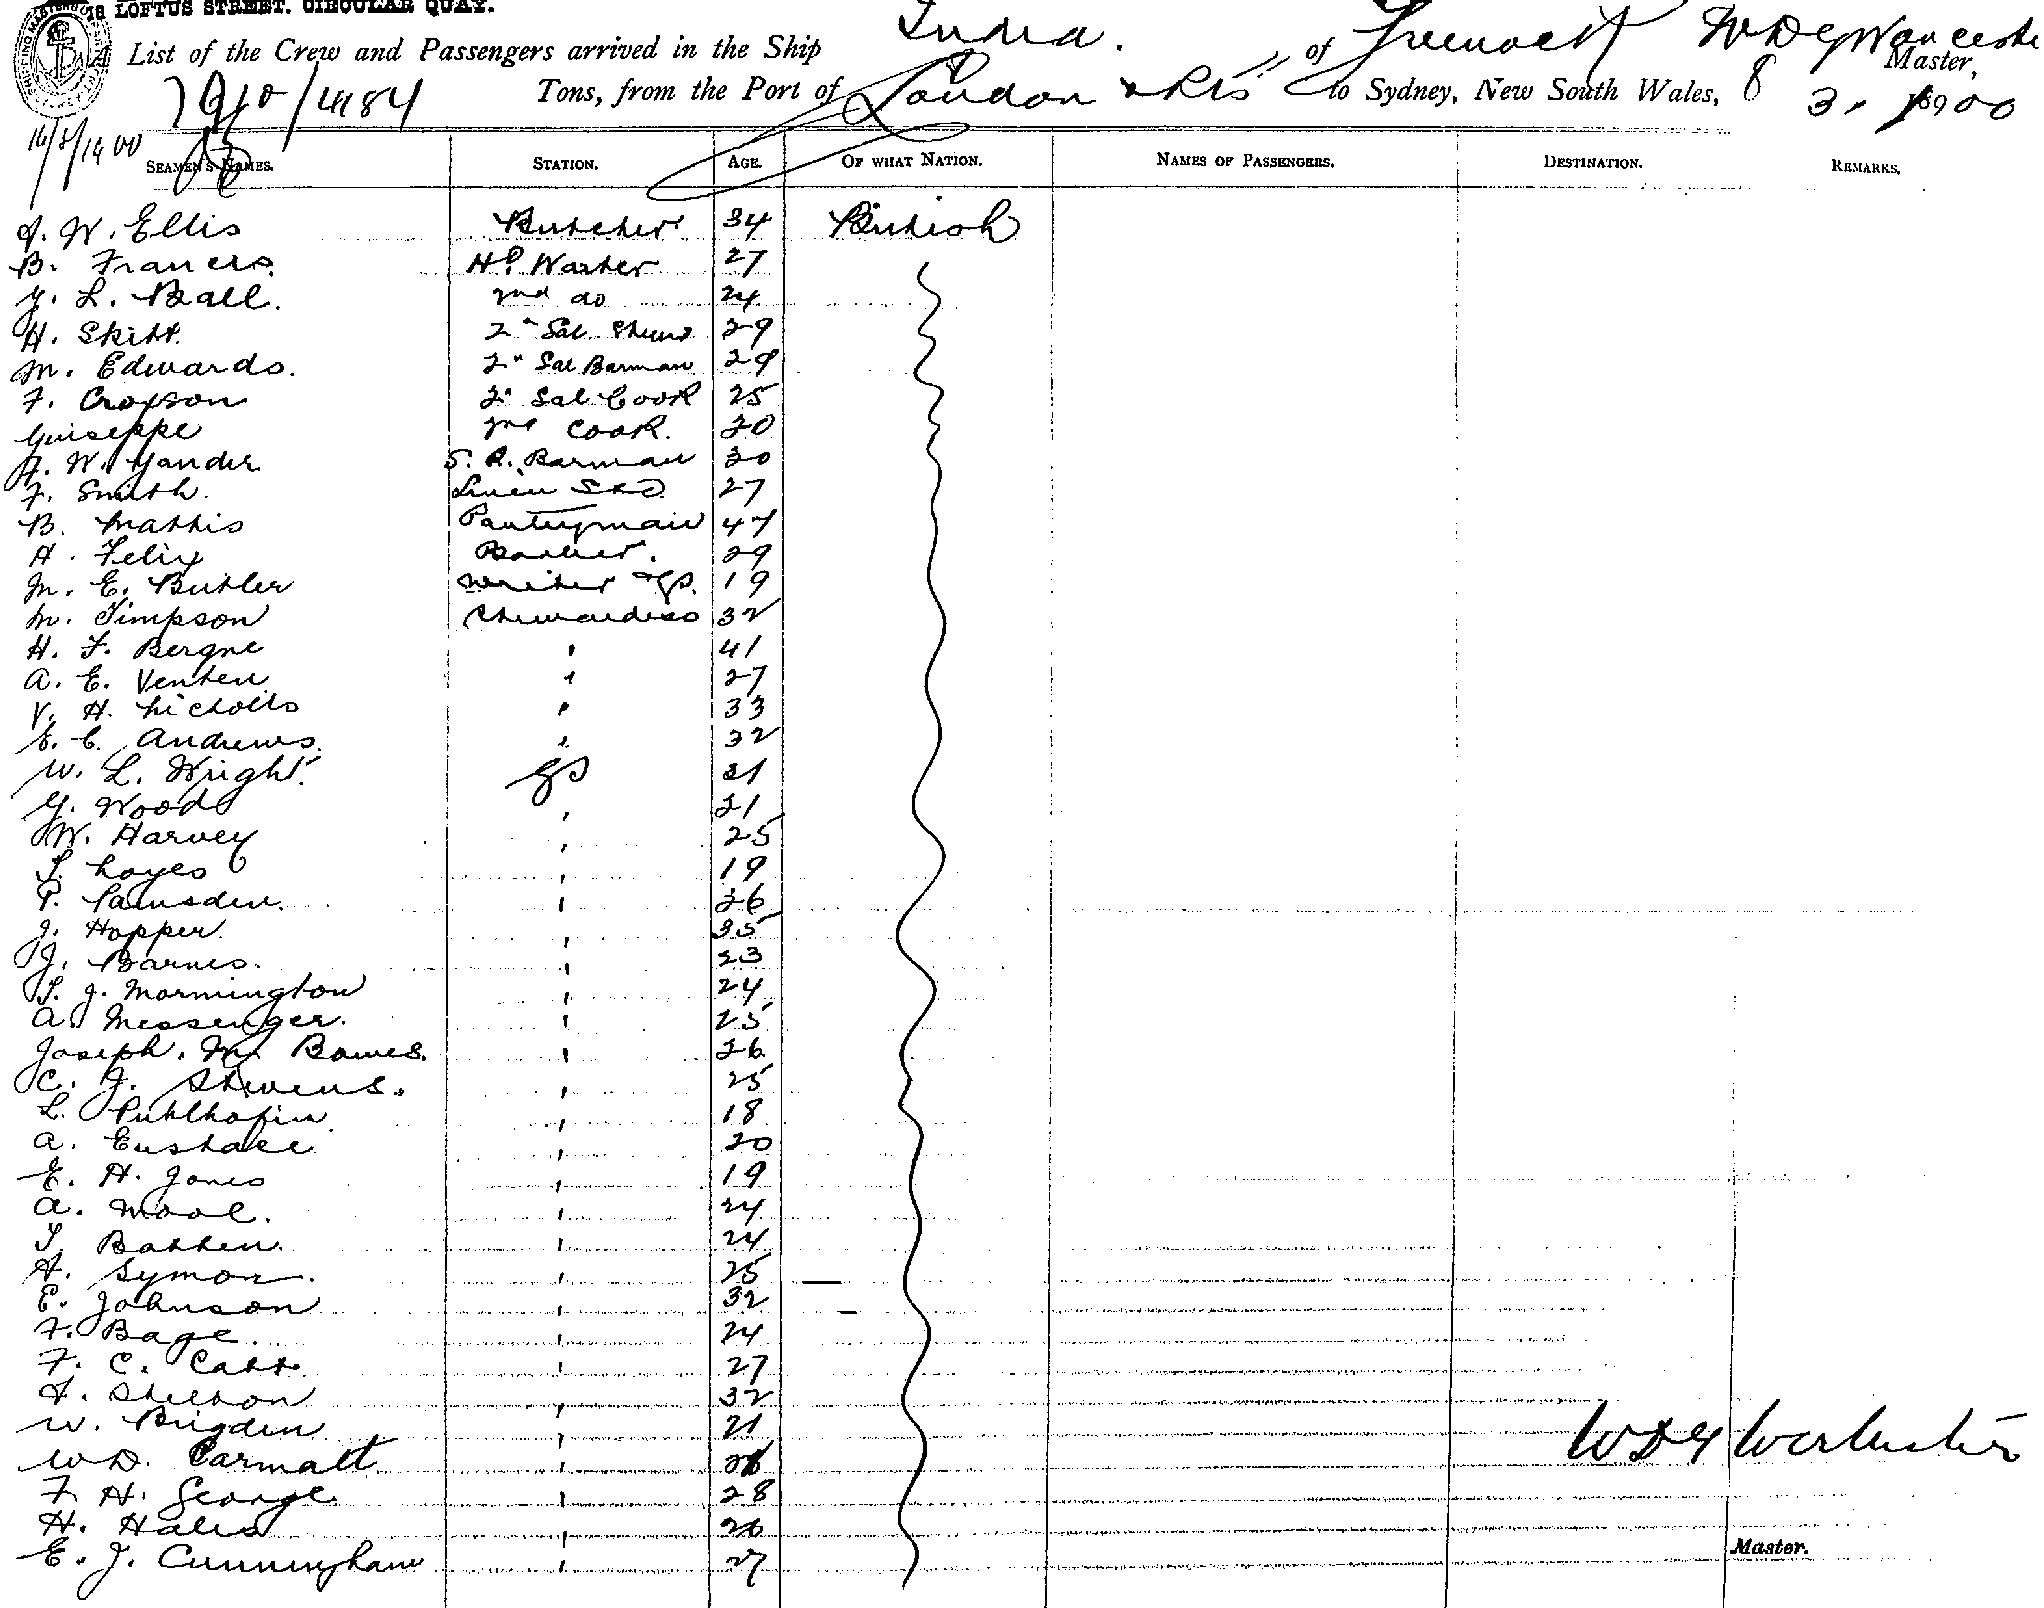 18 LOFTUS STREET. CIRCULAR QUAY.
A List of the Crew and Passengers arrived in the Ship India. of Greenock W D G Worcester Master,
7910/4184 Tons, from the Port of London & Pts to Sydney, New South Wales, 8 3. 1900
16/3/1900
SEAMEN'S NAMES. STATION. AGE. OF WHAT NATION. NAMES OF PASSENGERS. DESTINATION. REMARKS.
A. W. Ellis Butcher 34 British
B. Francis Hd Waiter 27
J. L. Ball. 2nd do 24
H. Skitt. 2" Sal Stewd 29
M. Edwards. 2" Sal Barman 29
F. Croxson 2" Sal Cook 25
Guiseppe 2nd Cook. 20
A. W. Yander S. R. Barman 30
F. Smith. Linen Std 27
B. Mattis Pantryman 47
A. Felix Barber. 29
M. E. Butler Writer & GS. 19
M. Timpson Stewardess 32
H. F. Bergne " 41
A. E. Venten " 27
V. H. Nicholls " 33
E. C. Andrews. " 32
W. L. Wright. GS 31
G. Wood " 21
W. Harvey " 25
S. Loyes " 19
P. Ramsden. " 26
J. Hopper. " 35
J. Barnes. " 23
S. J. Mormington " 24
A. Messenger. " 25
Joseph. M. Bowes. " 26
C. J. Stevens. " 25
L. Puhlhofin. " 18
A. Eustace " 20
E. H. Jones " 19
A. Mool. " 24
T Batten. " 24
H. Symon. " 25
E. Johnson " 32
F. Bage. " 24
F. C. Catt. " 27
H. Shelton " 32
W. Brigden " 21
W D G Worcester
W D. Carmatt "
F. H. George " 28
H. Hales " 26
Master.
E. J. Cunningham " 27